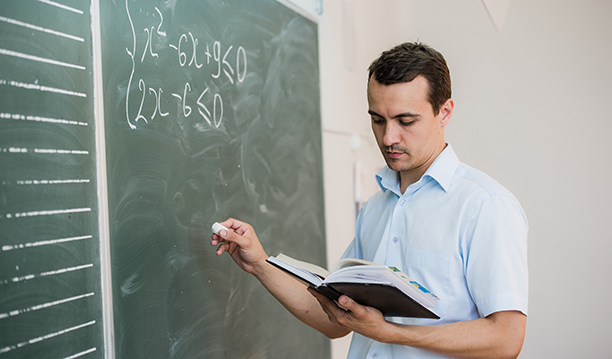 x² -6x+9≤0
2x-6≤0